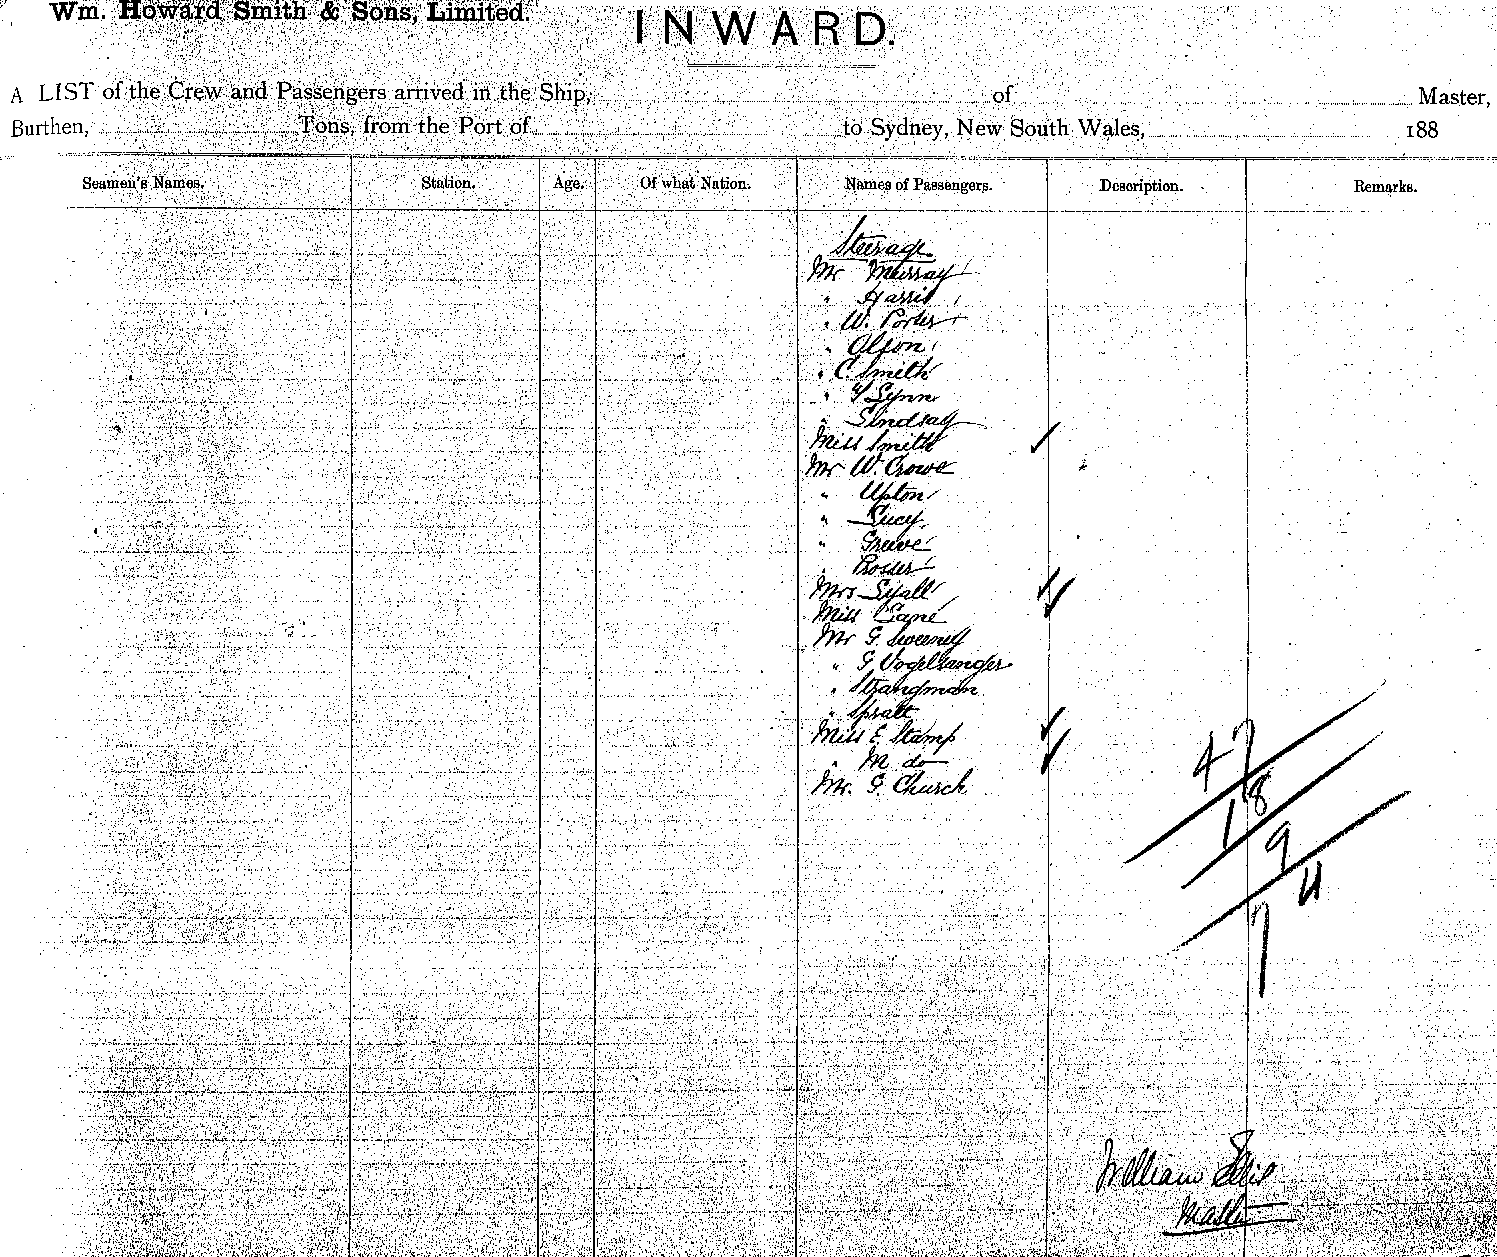 Wm. Howard Smith & Sons, Limited.
INWARD.
A LIST of the Crew and Passengers arrived in the Ship, of Master,
Burthen, Tons, from the Port of to Sydney, New South Wales, 188
Seamen's Names. Station. Age. Of what Nation. Names of Passengers. Description. Remarks.
Steerage
Mr Murray
" Harris
" W. Porter
" Olson
" C. Smith
" Lynn
" Lindsay
Miss Smith
Mr W. Crowe
" Upton
" Lucy
" Greeve
" Prosser
Mrs Lyall
Miss Cane
Mr G. Sweeney
" G. Vogelsanger
" Strangman
" Spratt
Miss E Stamp
" M do
Mr. G. Church
47
18
9
4
7
William Ellis
Master